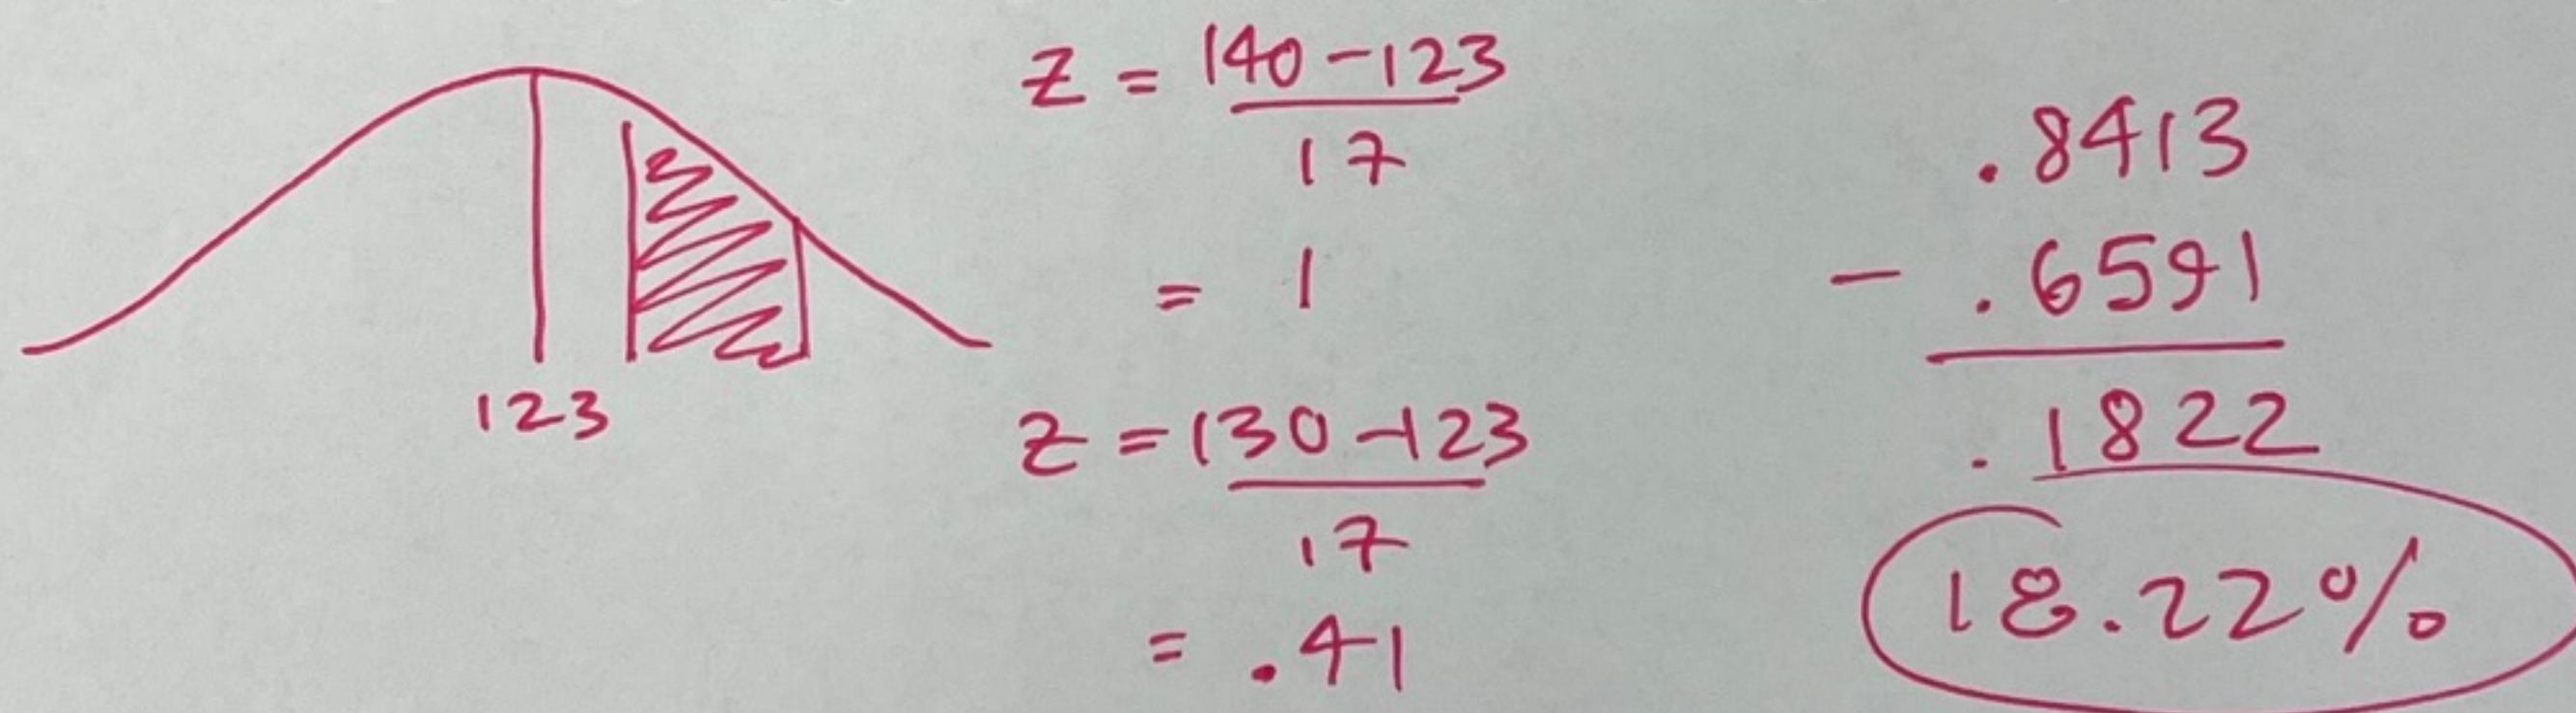 123
z = 140-123
17
= 1
z = 130-123
17
= .41
.8413
- .6591
.1822
18.22%